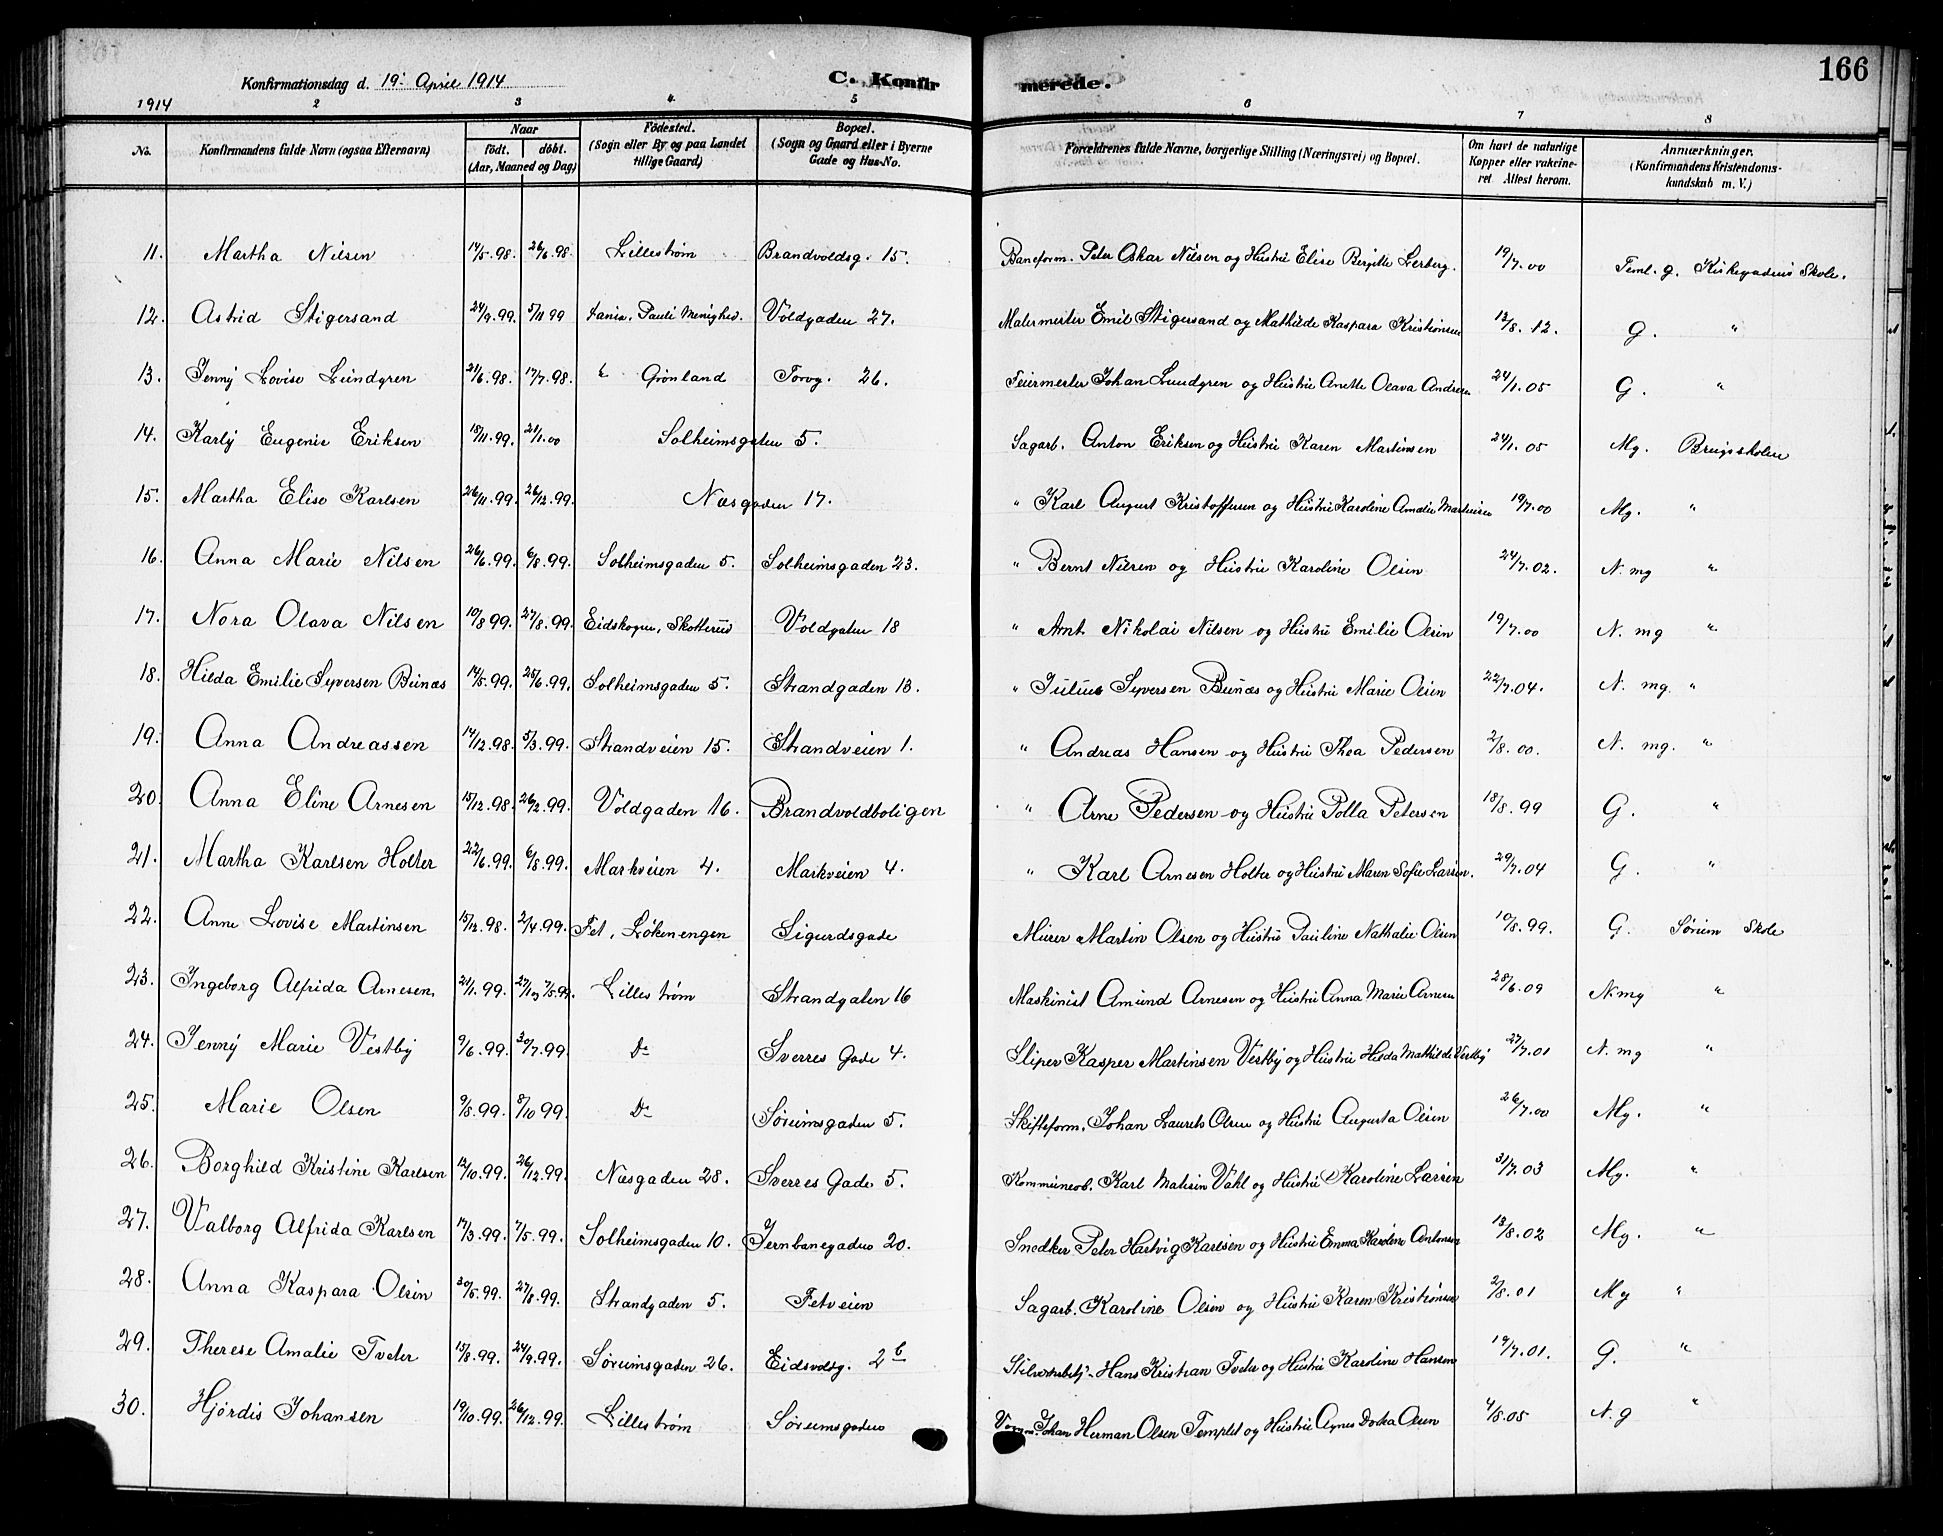 Konfirmationsdag d. 19' April 1914 C. Konfirmerede. 166
1914 2 3 4 5 6 7 8
No. Konfirmandens fulde Navn (ogsaa Efternavn) Naar født. døbt. (Aar, Maaned og Dag) Fødested. (Sogn eller By og paa Landet tillige Gaard) Bopæl. (Sogn og Gaard eller i Byerne Gade og Hus-No. Forældrenes fulde Navne, borgerlige Stilling (Næringsvei) og Bopæl. Om havt de naturlige Kopper eller vakcineret. Attest herom. Anmærkninger. (Konfirmandens Kristendomskundskab m. V.)
11. Martha Nilsen 14/5.98. 26/6.98. Lillestrøm Brandvoldsg. 15. Baneform. Peter Oskar Nilsen og Hustru Elise Birgitte Lerberg. 19/7.00 Teml. g. Kirkegadens Skole.
12. Astrid Stigersand 24/9.99. 5/11 99 Kania. Pauli Menighed. Voldgaden 27. Malermester Emil Stigersand og Mathilde Kaspara Kristiansen 12/8.12. G. "
13. Jenny Lovise Lundgren 21/6.98. 17/7.98. " Grønland Torvg. 26. Feiermester Johan Lundgren og Hustru Anette Olava Andresen 24/1.05 G. "
14. Karly Eugenie Eriksen 18/11.99. 21/1.00 Solheimsgaten 5. Sagarb. Anton Eriksen og Hustru Karen Martinsen 24/1.05 Mg. Brugsskolen
15. Martha Elise Karlsen 26/11.99. 26/12.99. Næsgaden 17. " Karl August Kristoffersen og Hustru Karoline Amalie Martinsen 19/7.00 Mg. "
16. Anna Marie Nilsen 26/6.99. 6/8.99. Solheimsgaden 5. Solheimsgaden 23. " Bernt Nilsen og Hustru Karoline Olsen 24/7.02. N. mg "
17. Nora Olava Nilsen 10/8 99. 27/8.99. Eidskogen, Skotterud Voldgaten 18 " Arnt Nikolai Nilsen og Hustru Emilie Olsen 19/7.00 N. mg "
18. Hilda Emilie Syversen Bunæs 14/5.99. 25/6.99. Solheimsgaden 5. Strandgaden 13. " Julius Syversen Bunæs og Hustru Marie Olsen 22/7.04. N. mg. "
19. Anna Andreassen 14/12.98. 5/3.99. Strandveien 15. Strandveien 1. " Andreas Hansen og Hustru Thea Pedersen 2/8.00. N. mg. "
20. Anna Eline Arnesen 15/12.98. 26/2.99. Voldgaden 16. Brandvoldboligen " Arne Pedersen og Hustru Polla Petersen 18/8.99 G. "
21. Martha Karlsen Holter 22/6.99. 6/8.99. Markveien 4. Markveien 4. " Karl Arnesen Holter og Hustru Maren Sofie Larsen. 29/7.04 G. "
22. Anne Lovise Martinsen 15/12.98. 2/4.99. Fet, Løkenengen Sigurdsgade Murer Martin Olsen og Hustru Pauline Nathalie Olsen 10/8.99. G. Sørum Skole
23. Ingeborg Alfrida Arnesen. 21/1.99. 27/1 og 7/5.99. Lillestrøm Strandgaten 16 Maskinist Amund Arnesen og Hustru Anna Marie Arnesen 28/6.09 N. mg "
24. Jenny Marie Vestby 9/6.99. 30/7.99. Do Sverres Gade 4. Sliper Kasper Martinsen Vestby og Hustru Hilda Mathilde Vestby 27/7.01 N. mg "
25. Marie Olsen 9/8.99. 8/10 99. Do Sørumsgaden 5. Skifteform. Johan Laurets Olsen og Hustru Augusta Olsen 26/7.00 Mg. "
26. Borghild Kristine Karlsen 12/10.99. 26/12.99. Næsgaden 28. Sverres Gade 5. Kommuneob. Karl Vahl og Hustru Karoline Larsen 31/7.03 Mg. "
27. Valborg Alfrida Karlsen 17/3.99. 7/5.99. Solheimsgaden 10. Jernbanegaden 20. Snedker Peter Hartvig Karlsen og Hustru Emma Karoline Antonsen 13/8.02 Mg. "
28. Anna Kaspara Olsen 30/5.99. 27/8.99. Strandgaden 5. Fetveien Sagarb. Karoline Olsen og Hustru Karen Kristiansen 2/8.01 Mg "
29. Therese Amalie Tveter 15/8.99. 24/9.99. Sørumsgaden 26. Eidsvoldsg. 2 b Hans Kristian Tveter og Hustru Karoline Hansen 19/7.01. G. "
30. Hjørdis Johansen 19/10.99. 26/12.99. Lillestrøm Sørumsgaden Johan Herman Olsen Templet og Hustru Agnes Olsen 4/8.05 N. g "